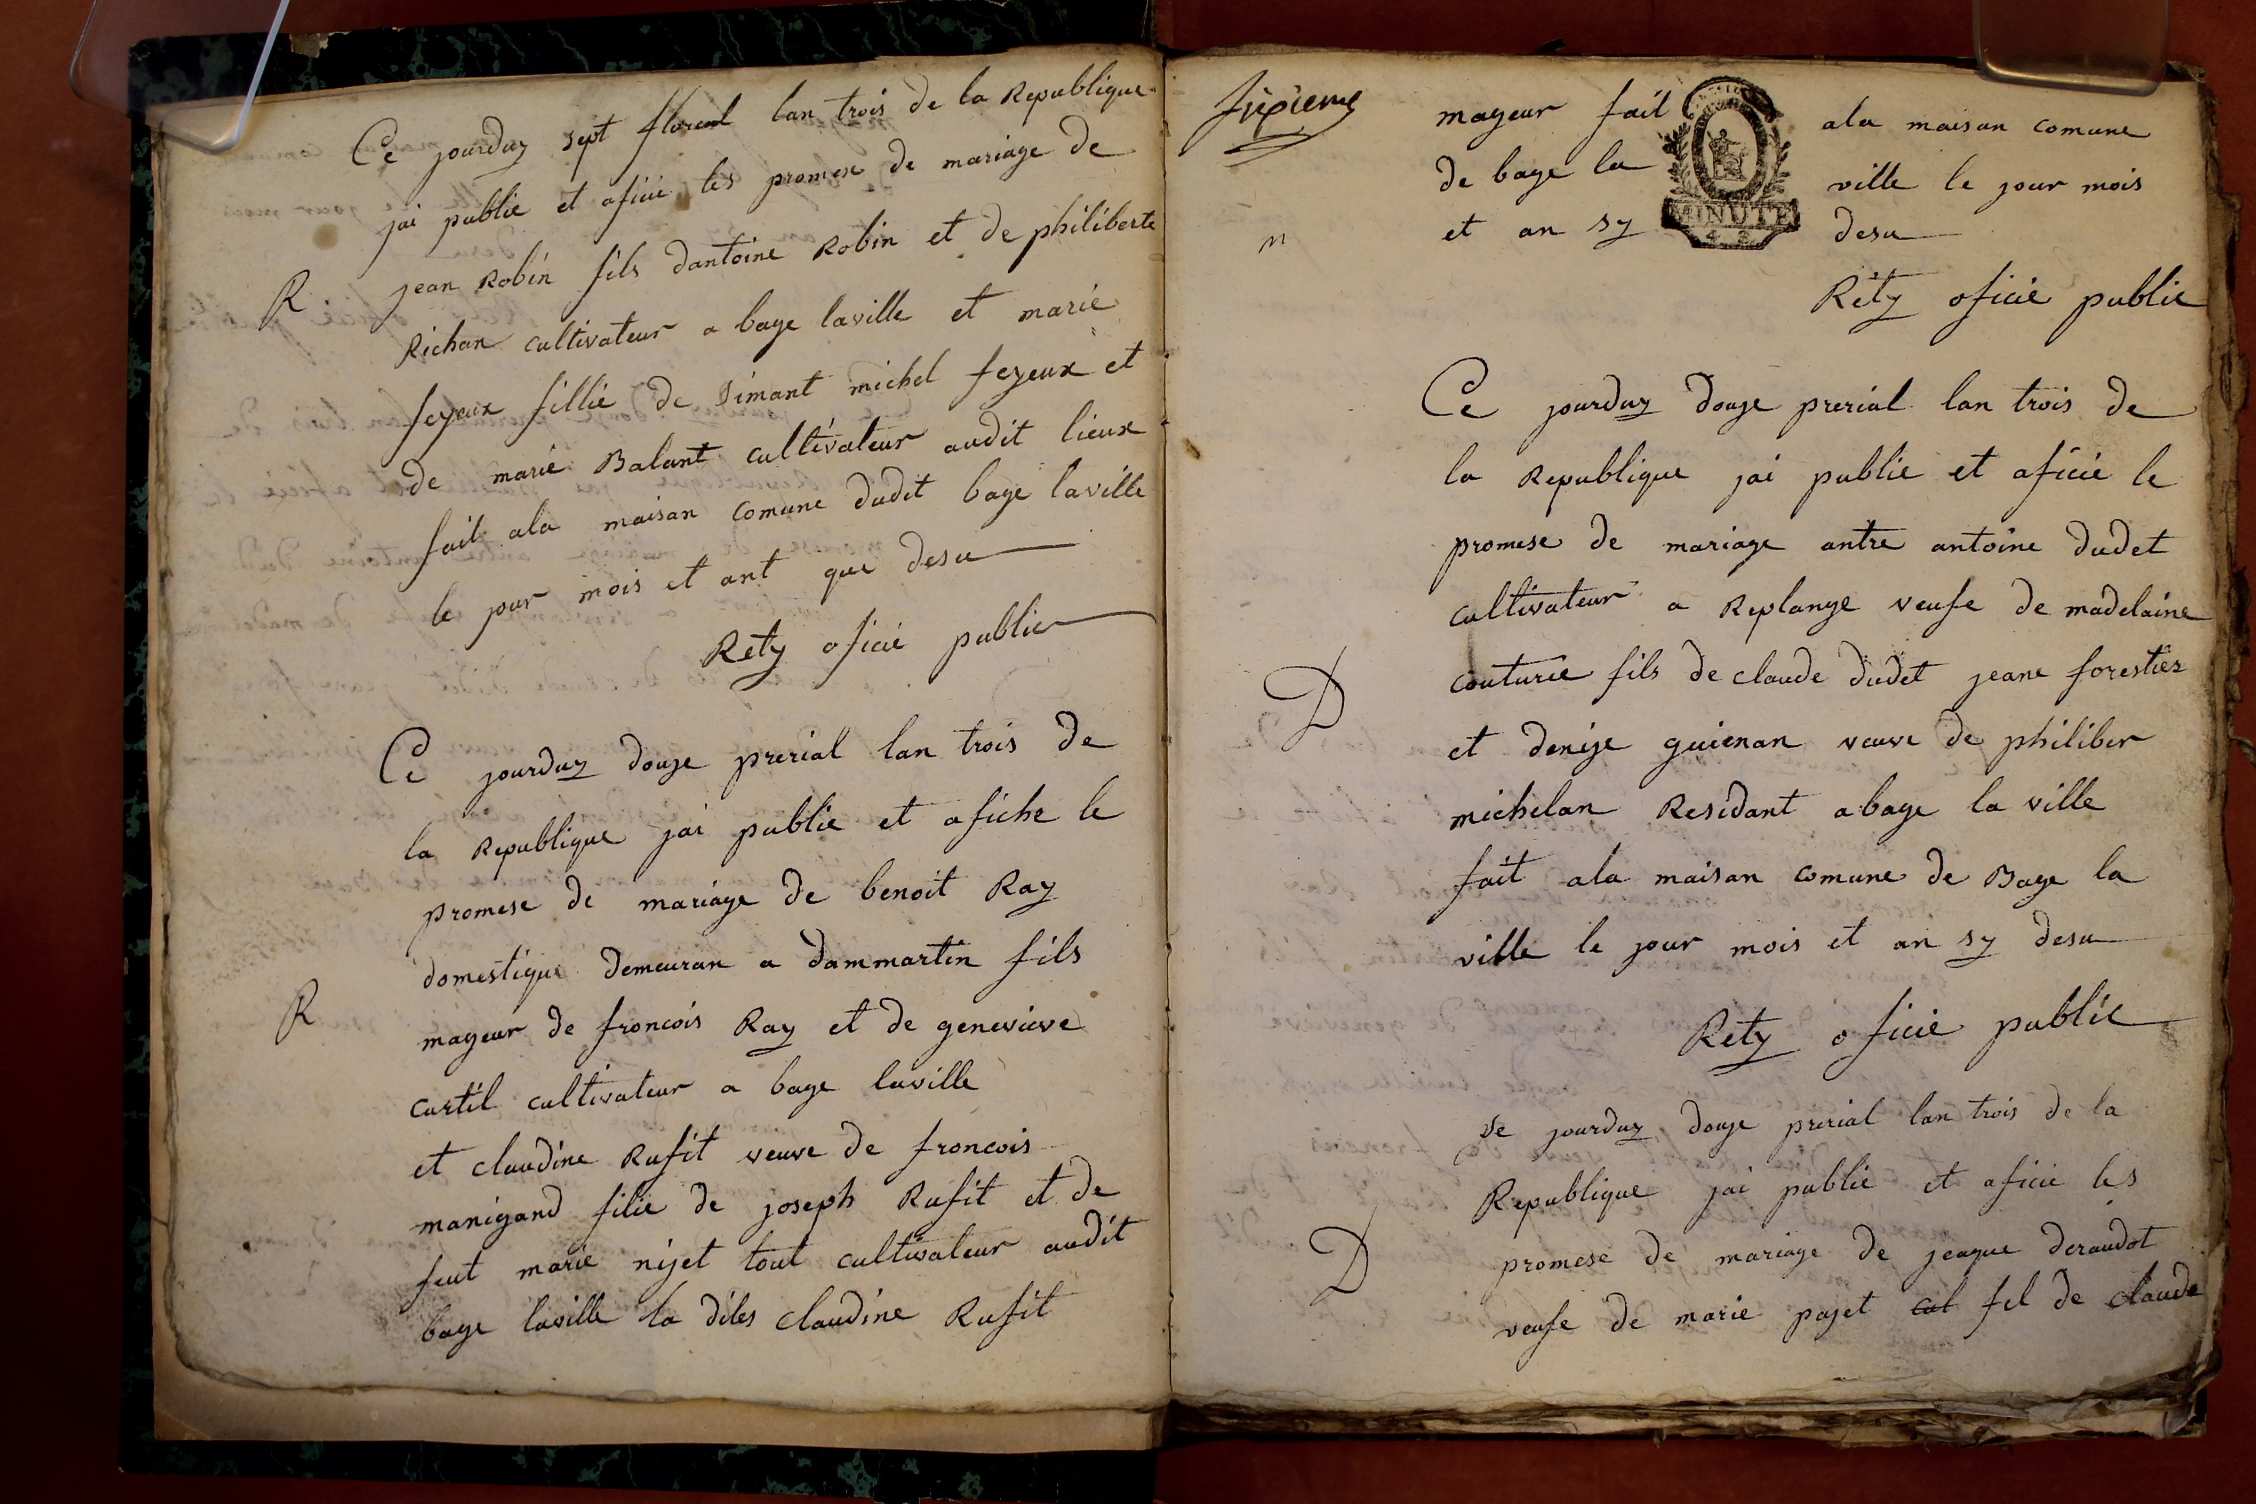 Ce jourduy sept floreal lan trois de la Republique
jai publie et aficie les promese de mariage de
R
jean Robin fils dantoine Robin et de philiberte
Richan cultivateur a bage laville et marie
feyeux fillie de Simant michel feyeux et
de marie Balant cultivateur audit lieux
fait ala maison comune dudit bage laville
le jour mois et ant que desu
Rety oficie public
Ce jourduy douze prerial lan trois de
la Republique jai publie et afiche le
promese de mariage de benoit Ray
domestique demeuran a dammartin fils
R
mayeur de francois Ray et de genevieve
curtil cultivateur a bage laville
et claudine Rufit veuve de francois
manigand filie de joseph Rufit et de
feut marie nijet tout cultivateur audit
bage laville la dites claudine Rufit
sixieme
mayeur fait ala maison comune
de bage la ville le jour mois
et an sy desu
MINUTE
Rety oficie public
Ce jourduy douze prerial lan trois de
la Republique jai publie et aficie le
promese de mariage antre antoine dudet
cultivateur a Replange veufe de madelaine
D
couturie fils de claude dudet jeane forestier
et denize guienan veuve de philiber
michelan Residant a bage la ville
fait ala maison comune de Bage la
ville le jour mois et an sy desu
Rety oficie public
Se jourduy douze prerial lan trois de la
Republique jai publie et aficie les
D
promese de mariage de jeaque deraudot
veufe de marie pajet cul fil de claude